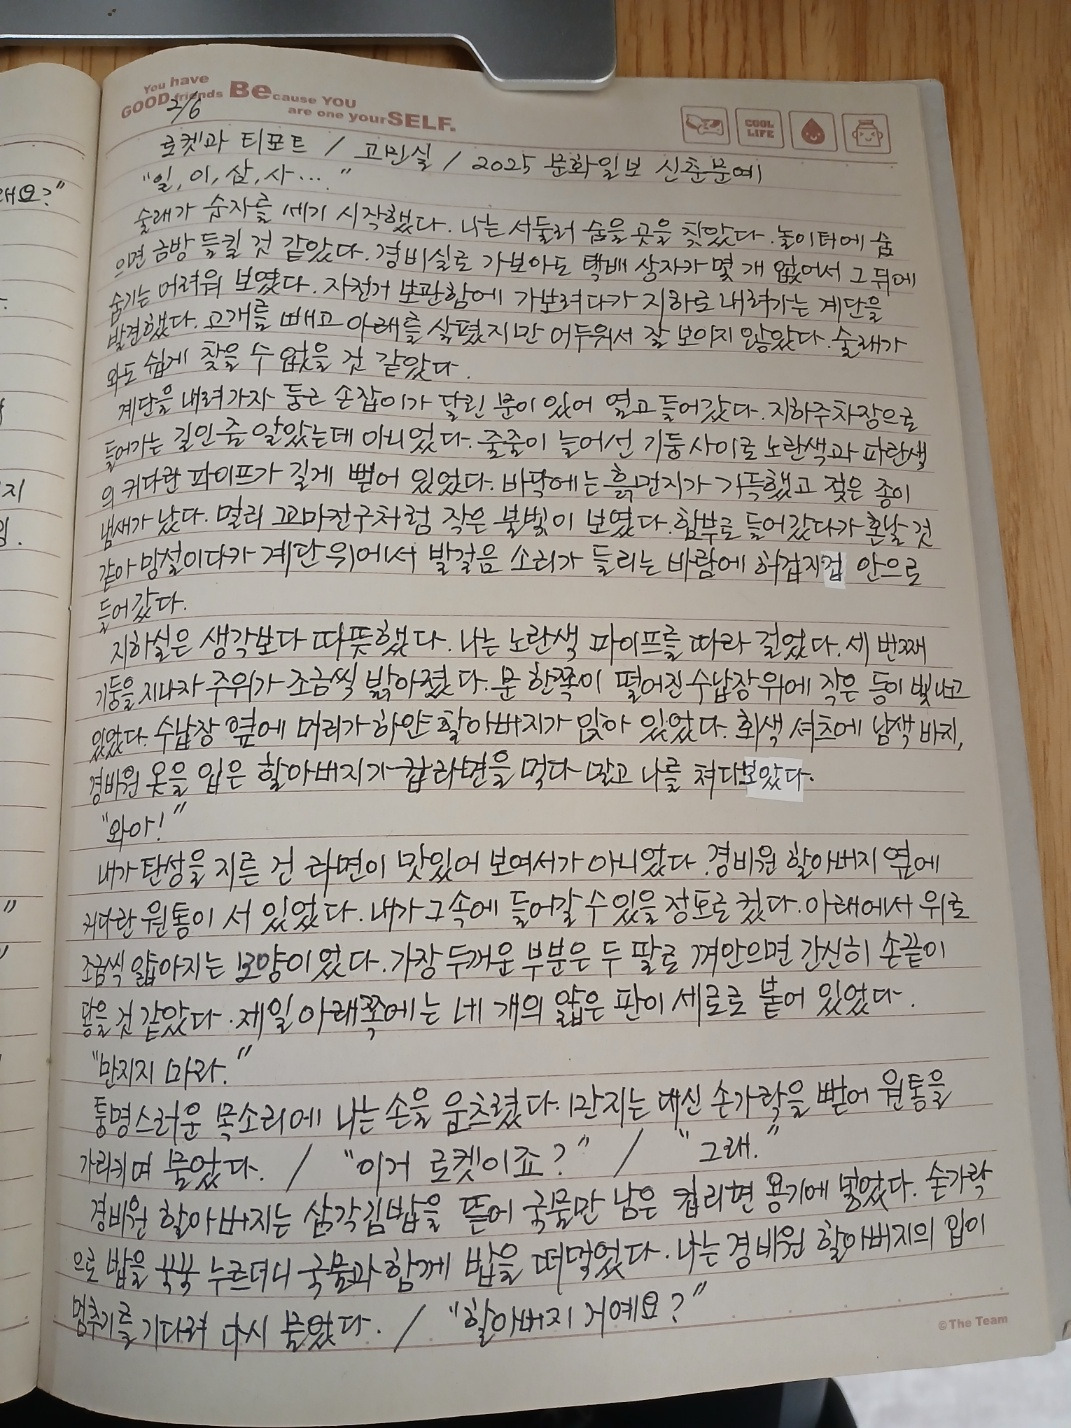 You have
GOOD friends Because YOU
are one yourSELF.
COOL LIFE
2/6
로켓과 티포트 / 고민실 / 2025 문화일보 신춘문예
"일, 이, 삼, 사..."
술래가 숫자를 세기 시작했다. 나는 서둘러 숨을 곳을 찾았다. 놀이터에 숨
으면 금방 들킬 것 같았다. 경비실로 가보아도 택배 상자가 몇 개 없어서 그 뒤에
숨기는 어려워 보였다. 자전거 보관함에 가보려다가 지하로 내려가는 계단을
발견했다. 고개를 빼고 아래를 살폈지만 어두워서 잘 보이지 않았다. 술래가
와도 쉽게 찾을 수 없을 것 같았다.
계단을 내려가자 둥근 손잡이가 달린 문이 있어 열고 들어갔다. 지하주차장으로
들어가는 길인 줄 알았는데 아니었다. 줄줄이 늘어선 기둥 사이로 노란색과 파란색
의 커다란 파이프가 길게 뻗어 있었다. 바닥에는 흙먼지가 가득했고 젖은 종이
냄새가 났다. 멀리 꼬마전구처럼 작은 불빛이 보였다. 함부로 들어갔다가 혼날 것
같아 망설이다가 계단 위에서 발걸음 소리가 들리는 바람에 허겁지겁 안으로
들어갔다.
지하실은 생각보다 따뜻했다. 나는 노란색 파이프를 따라 걸었다. 세 번째
기둥을 지나자 주위가 조금씩 밝아졌다. 문 한쪽이 떨어진 수납장 위에 작은 등이 빛나고
있었다. 수납장 옆에 머리가 하얀 할아버지가 앉아 있었다. 회색 셔츠에 남색 바지,
경비원 옷을 입은 할아버지가 컵라면을 먹다 말고 나를 쳐다보았다.
"와아!"
내가 탄성을 지른 건 라면이 맛있어 보여서가 아니었다. 경비원 할아버지 옆에
커다란 원통이 서 있었다. 내가 그 속에 들어갈 수 있을 정도로 컸다. 아래에서 위로
조금씩 얇아지는 모양이었다. 가장 두꺼운 부분은 두 팔로 껴안으면 간신히 손끝이
닿을 것 같았다. 제일 아래쪽에는 네 개의 얇은 판이 세로로 붙어 있었다.
"만지지 마라."
퉁명스러운 목소리에 나는 손을 움츠렸다. 만지는 대신 손가락을 뻗어 원통을
가리키며 물었다. / "이거 로켓이죠?" / "그래."
경비원 할아버지는 삼각김밥을 뜯어 국물만 남은 컵라면 용기에 넣었다. 숟가락
으로 밥을 꾹꾹 누르더니 국물과 함께 밥을 떠먹었다. 나는 경비원 할아버지의 입이
멈추기를 기다려 다시 물었다. / "할아버지 거예요?"
©The Team